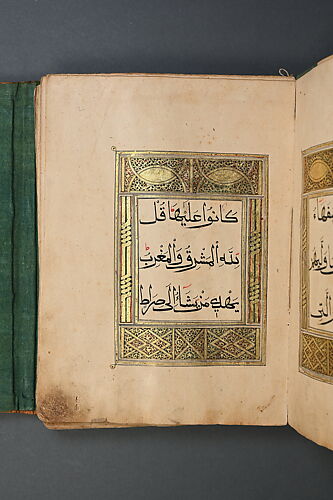 التى
كانوا عليها قل
لله المشرق والمغرب
يهدي من يشاء الى صراط